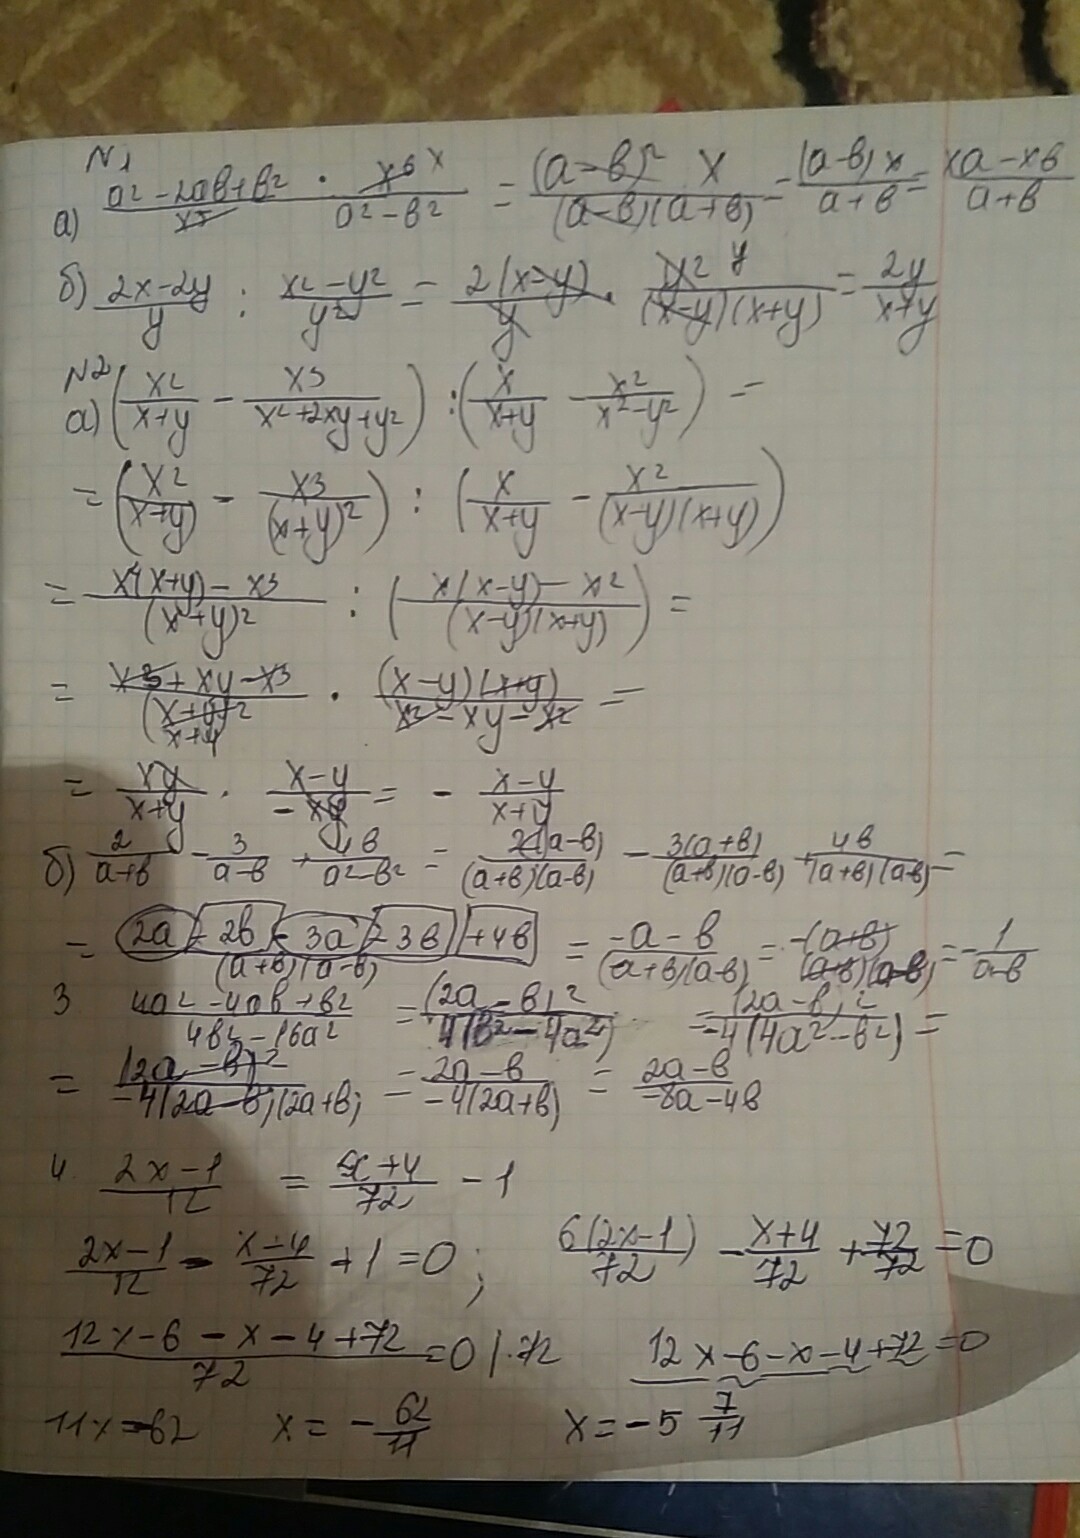 N1
а) (a² - 2ab + b²)/x⁵ · x⁶ x/(a² - b²) = (a-b)² x/((a-b)(a+b)) = (a-b)x/(a+b) = (xa - xb)/(a+b)
б) (2x-2y)/y : (x² - y²)/y² = 2(x-y)/y · y² y/((x-y)(x+y)) = 2y/(x+y)
N2
а) (x²/(x+y) - x3/(x²+2xy+y²)) : (x/(x+y) - x²/(x²-y²)) =
= (x²/(x+y) - x3/(x+y)²) : (x/(x+y) - x²/((x-y)(x+y)))
= (x²(x+y) - x3)/(x+y)² : ((x(x-y) - x²)/((x-y)(x+y))) =
= (x3 + xy - x3)/(x+y)² x+y · (x-y)(x+y)/(x² - xy - x²) =
= xy/(x+y) · (x-y)/(-xy) = - (x-y)/(x+y)
б) 2/(a+b) - 3/(a-b) + 4b/(a²-b²) = 2(a-b)/((a+b)(a-b)) - 3(a+b)/((a+b)(a-b)) + 4b/((a+b)(a-b)) =
= (2a - 2b - 3a - 3b + 4b)/((a+b)(a-b)) = (-a-b)/((a+b)(a-b)) = -(a+b)/((a+b)(a-b)) = - 1/(a-b)
3 (4a² - 4ab + b²)/(4b² - 16a²) = (2a-b)²/(4(b² - 4a²)) = (2a-b)²/(-4(4a²-b²)) =
= (2a-b)²/(-4(2a-b)(2a+b)) = (2a-b)/(-4(2a+b)) = (2a-b)/(-8a-4b)
4. (2x-1)/12 = (x+4)/72 - 1
(2x-1)/12 - (x-4)/72 + 1 = 0 ; 6(2x-1)/72 - (x+4)/72 + 72/72 = 0
(12x-6-x-4+72)/72 = 0 |·72 12x-6-x-4+72=0
11x=-62 x = - 62/11 x = -5 7/11